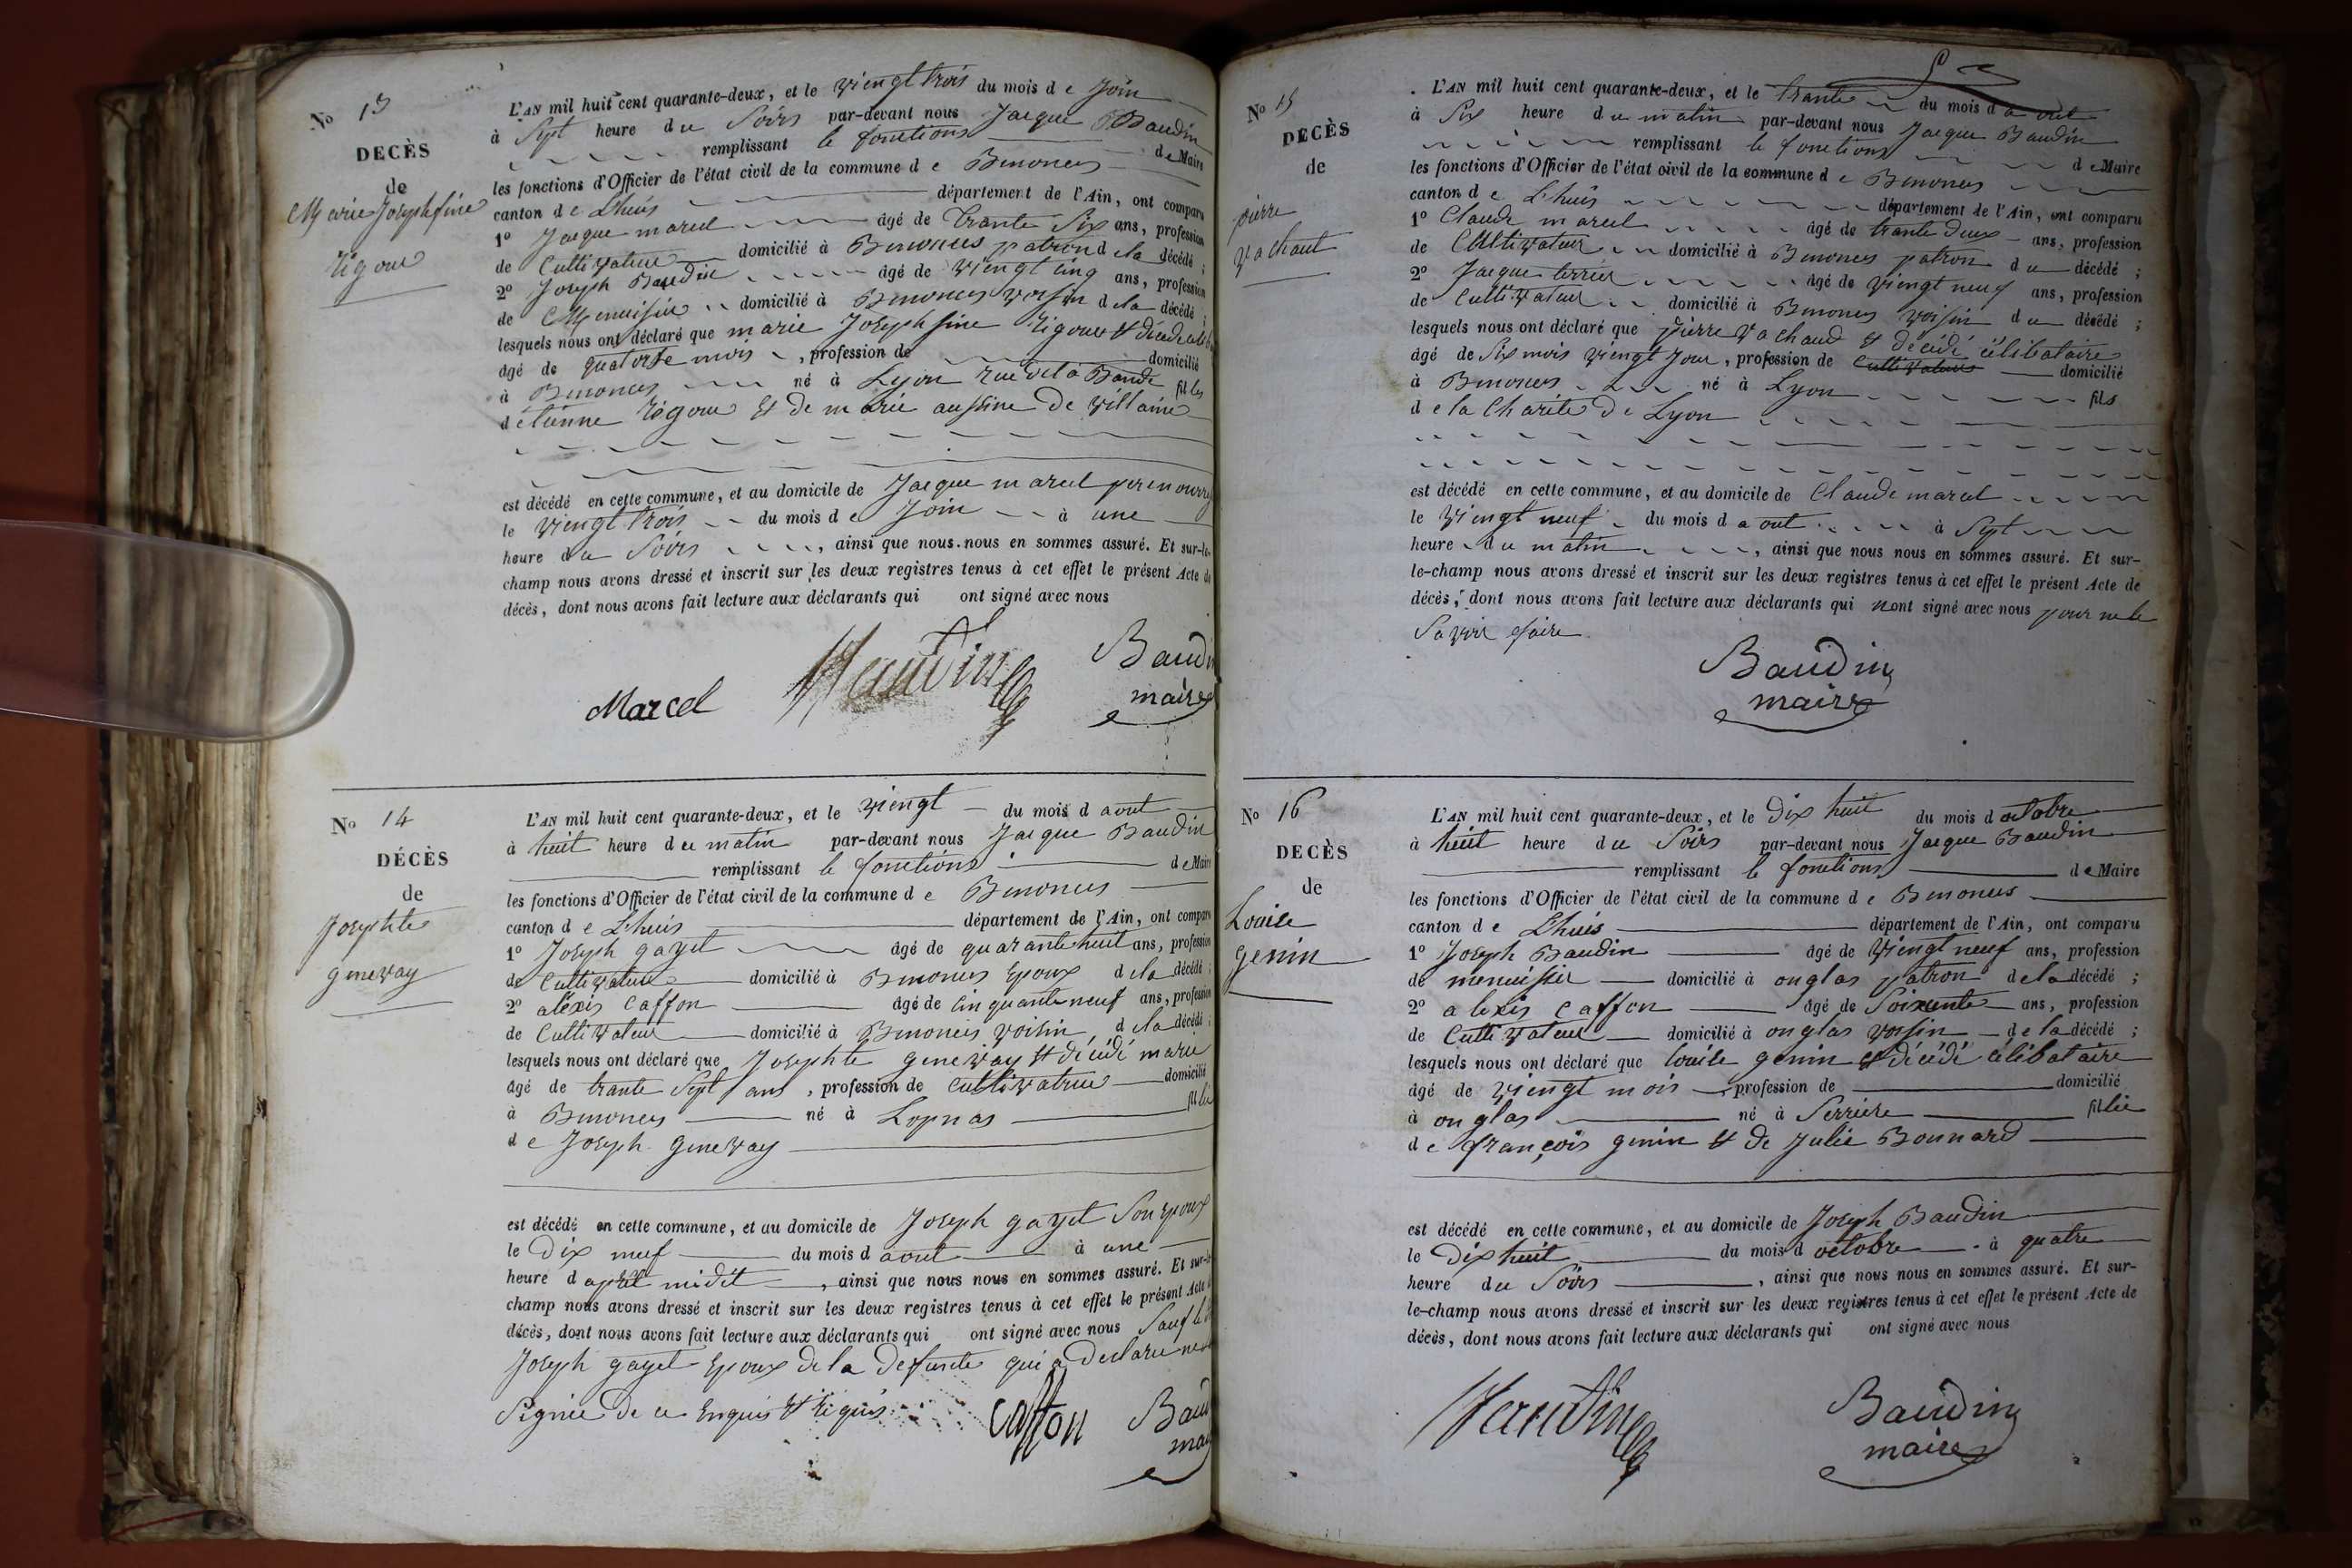 No 13
DECÈS
de
Marie Josephfine
Rigoux
L'AN mil huit cent quarante-deux, et le viengt trois du mois de Join
à Sept heure du Soirs par-devant nous Jacque Baudin
remplissant le fonctions de Maire
les fonctions d'Officier de l'état civil de la commune de Benonces
canton de Lhuis département de l'Ain, ont comparu
1o Jacque marcel âgé de trante Six ans, profession
de Cultivateur domicilié à Benonces patron de la décédé ;
2o Joseph Baudin âgé de viengt cinq ans, profession
de Menuisier domicilié à Benonces voisin de la décédé ;
lesquels nous ont déclaré que marie Josephfine Rigoux et décédé
âgé de quatorse mois , profession de domicilié
à Benonces né à Lyon rue de la Bande filles
d'etienne Rigoux et de marie aussine de villaine
est décédé en cette commune, et au domicile de Jacque marcel pere nourry
le viengt trois du mois de Join à une
heure du Soirs , ainsi que nous nous en sommes assuré. Et sur-le-
champ nous avons dressé et inscrit sur les deux registres tenus à cet effet le présent Acte de
décès, dont nous avons fait lecture aux déclarants qui ont signé avec nous
Marcel Baudin Baudin
maire
No 14
DÉCÈS
de
Josephte
genevay
L'AN mil huit cent quarante-deux, et le viengt du mois d aout
à huit heure du matin par-devant nous Jacque Baudin
remplissant le fonctions de Maire
les fonctions d'Officier de l'état civil de la commune de Benonces
canton de Lhuis département de l'Ain, ont comparu
1o Joseph gayet âgé de quarante huit ans, profession
de Cultivateur domicilié à Benonces Epoux de la décédé ;
2o alexis Caffon âgé de Cinquante neuf ans, profession
de Cultivateur domicilié à Benonces voisin de la décédé ;
lesquels nous ont déclaré que Josephte genevay et décédé marie
âgé de trante Sept ans , profession de Cultivatrice domicilié
à Benonces né à Lopnas fillie
de Joseph genevay
est décédé en cette commune, et au domicile de Joseph gayet Son epoux
le Dix neuf du mois d aout à une
heure d aprèt midit , ainsi que nous nous en sommes assuré. Et sur-le-
champ nous avons dressé et inscrit sur les deux registres tenus à cet effet le présent Acte
décès, dont nous avons fait lecture aux déclarants qui ont signé avec nous Sauf le
Joseph gayet Epoux de la Defunte qui a Declaré ne
Signié de ce Enquis et requis
Caffon Baud
mai
No 15
DECÈS
de
pierre
vachaut
L'AN mil huit cent quarante-deux, et le trante du mois d'aout
à Six heure du matin par-devant nous Jacque Baudin
remplissant le fonctions de Maire
les fonctions d'Officier de l'état civil de la commune de Benonces
canton de Lhuis département de l'Ain, ont comparu
1o Claude marcel âgé de trante deux ans, profession
de Cultivateur domicilié à Benonces patron du décédé ;
2o Jacque terrier âgé de viengt neuf ans, profession
de Cultivateur domicilié à Benonces voisin du décédé ;
lesquels nous ont déclaré que pierre vachaud et décédé célibataire
âgé de Six mois viengt Jour, profession de Cultivateur domicilié
à Benonces né à Lyon fils
de la Charité de Lyon
est décédé en cette commune, et au domicile de Claude marcel
le viengt neuf du mois d aout à Sept
heure du matin , ainsi que nous nous en sommes assuré. Et sur-
le-champ nous avons dressé et inscrit sur les deux registres tenus à cet effet le présent Acte de
décès, dont nous avons fait lecture aux déclarants qui nont signé avec nous pour ne le
Savoir faire
Baudin
maire
No 16
DECÈS
de
Louise
genin
L'AN mil huit cent quarante-deux, et le Dix huit du mois d octobre
à huit heure du Soirs par-devant nous Jacque Baudin
remplissant le fonctions de Maire
les fonctions d'Officier de l'état civil de la commune de Benonces
canton de Lhuis département de l'Ain, ont comparu
1o Joseph Baudin âgé de viengt neuf ans, profession
de menuisier domicilié à onglas patron de la décédé ;
2o alexis Caffon âgé de Soixente ans, profession
de Cultivateur domicilié à onglas voisin de la décédé ;
lesquels nous ont déclaré que louise genin et décédé célibataire
âgé de viengt mois profession de domicilié
à onglas né à Serriere fillie
de françois genin et de Julie Bonnard
est décédé en cette commune, et au domicile de Joseph Baudin
le Dix huit du mois d octobre à quatre
heure du Soirs , ainsi que nous nous en sommes assuré. Et sur-
le-champ nous avons dressé et inscrit sur les deux registres tenus à cet effet le présent Acte de
décès, dont nous avons fait lecture aux déclarants qui ont signé avec nous
Baudin Baudin
maire